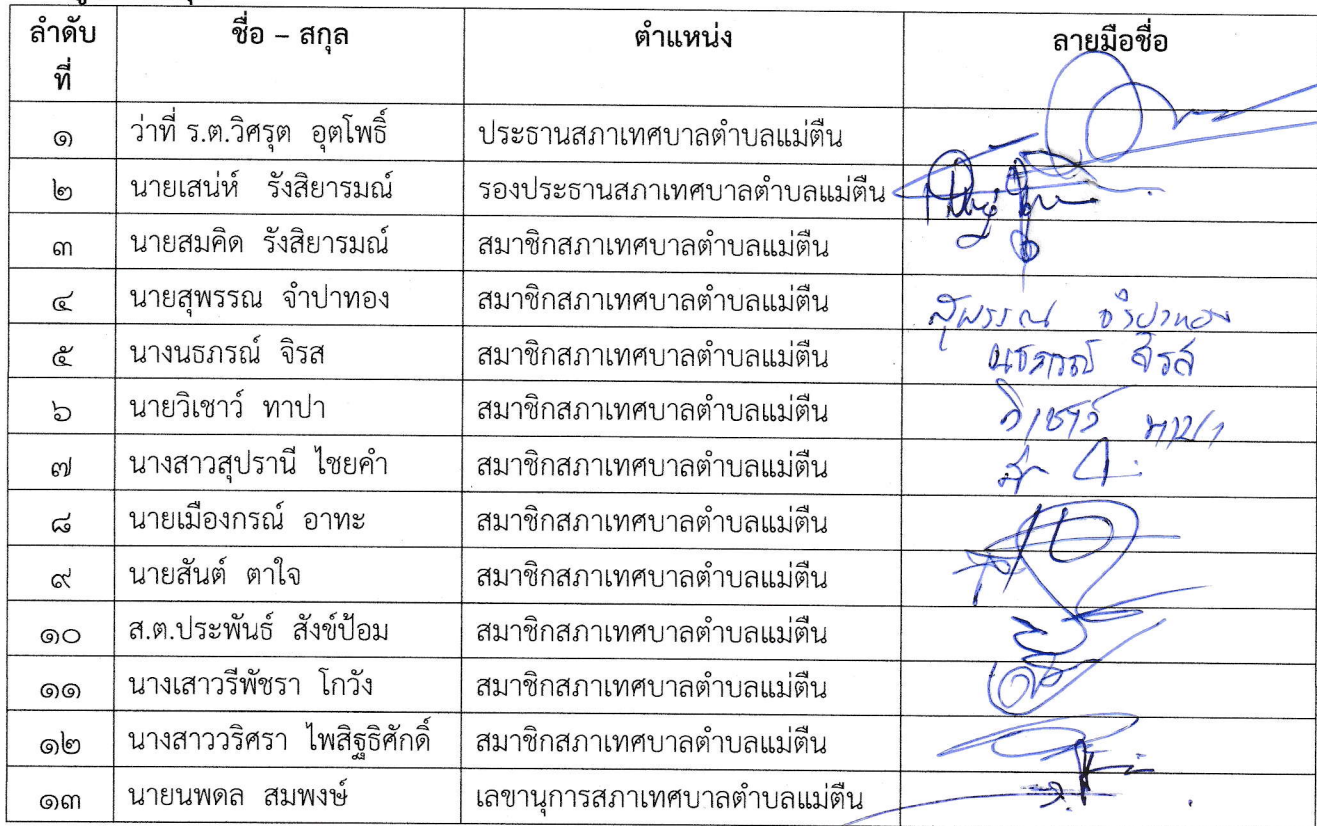 ลำดับ ชื่อ – สกุล ตำแหน่ง ลายมือชื่อ
ที่
๑ ว่าที่ ร.ต.วิศรุต อุตโพธิ์ ประธานสภาเทศบาลตำบลแม่ตืน
๒ นายเสน่ห์ รังสิยารมณ์ รองประธานสภาเทศบาลตำบลแม่ตืน
๓ นายสมคิด รังสิยารมณ์ สมาชิกสภาเทศบาลตำบลแม่ตืน
๔ นายสุพรรณ จำปาทอง สมาชิกสภาเทศบาลตำบลแม่ตืน สุพรรณ จำปาทอง
๕ นางนธภรณ์ จิรส สมาชิกสภาเทศบาลตำบลแม่ตืน นธภรณ์ จิรส
๖ นายวิเชาว์ ทาปา สมาชิกสภาเทศบาลตำบลแม่ตืน วิเชาว์ ทาปา
๗ นางสาวสุปรานี ไชยคำ สมาชิกสภาเทศบาลตำบลแม่ตืน
๘ นายเมืองกรณ์ อาทะ สมาชิกสภาเทศบาลตำบลแม่ตืน
๙ นายสันต์ ตาใจ สมาชิกสภาเทศบาลตำบลแม่ตืน
๑๐ ส.ต.ประพันธ์ สังข์ป้อม สมาชิกสภาเทศบาลตำบลแม่ตืน
๑๑ นางเสาวรีพัชรา โกวัง สมาชิกสภาเทศบาลตำบลแม่ตืน
๑๒ นางสาววริศรา ไพสิฐธิศักดิ์ สมาชิกสภาเทศบาลตำบลแม่ตืน
๑๓ นายนพดล สมพงษ์ เลขานุการสภาเทศบาลตำบลแม่ตืน